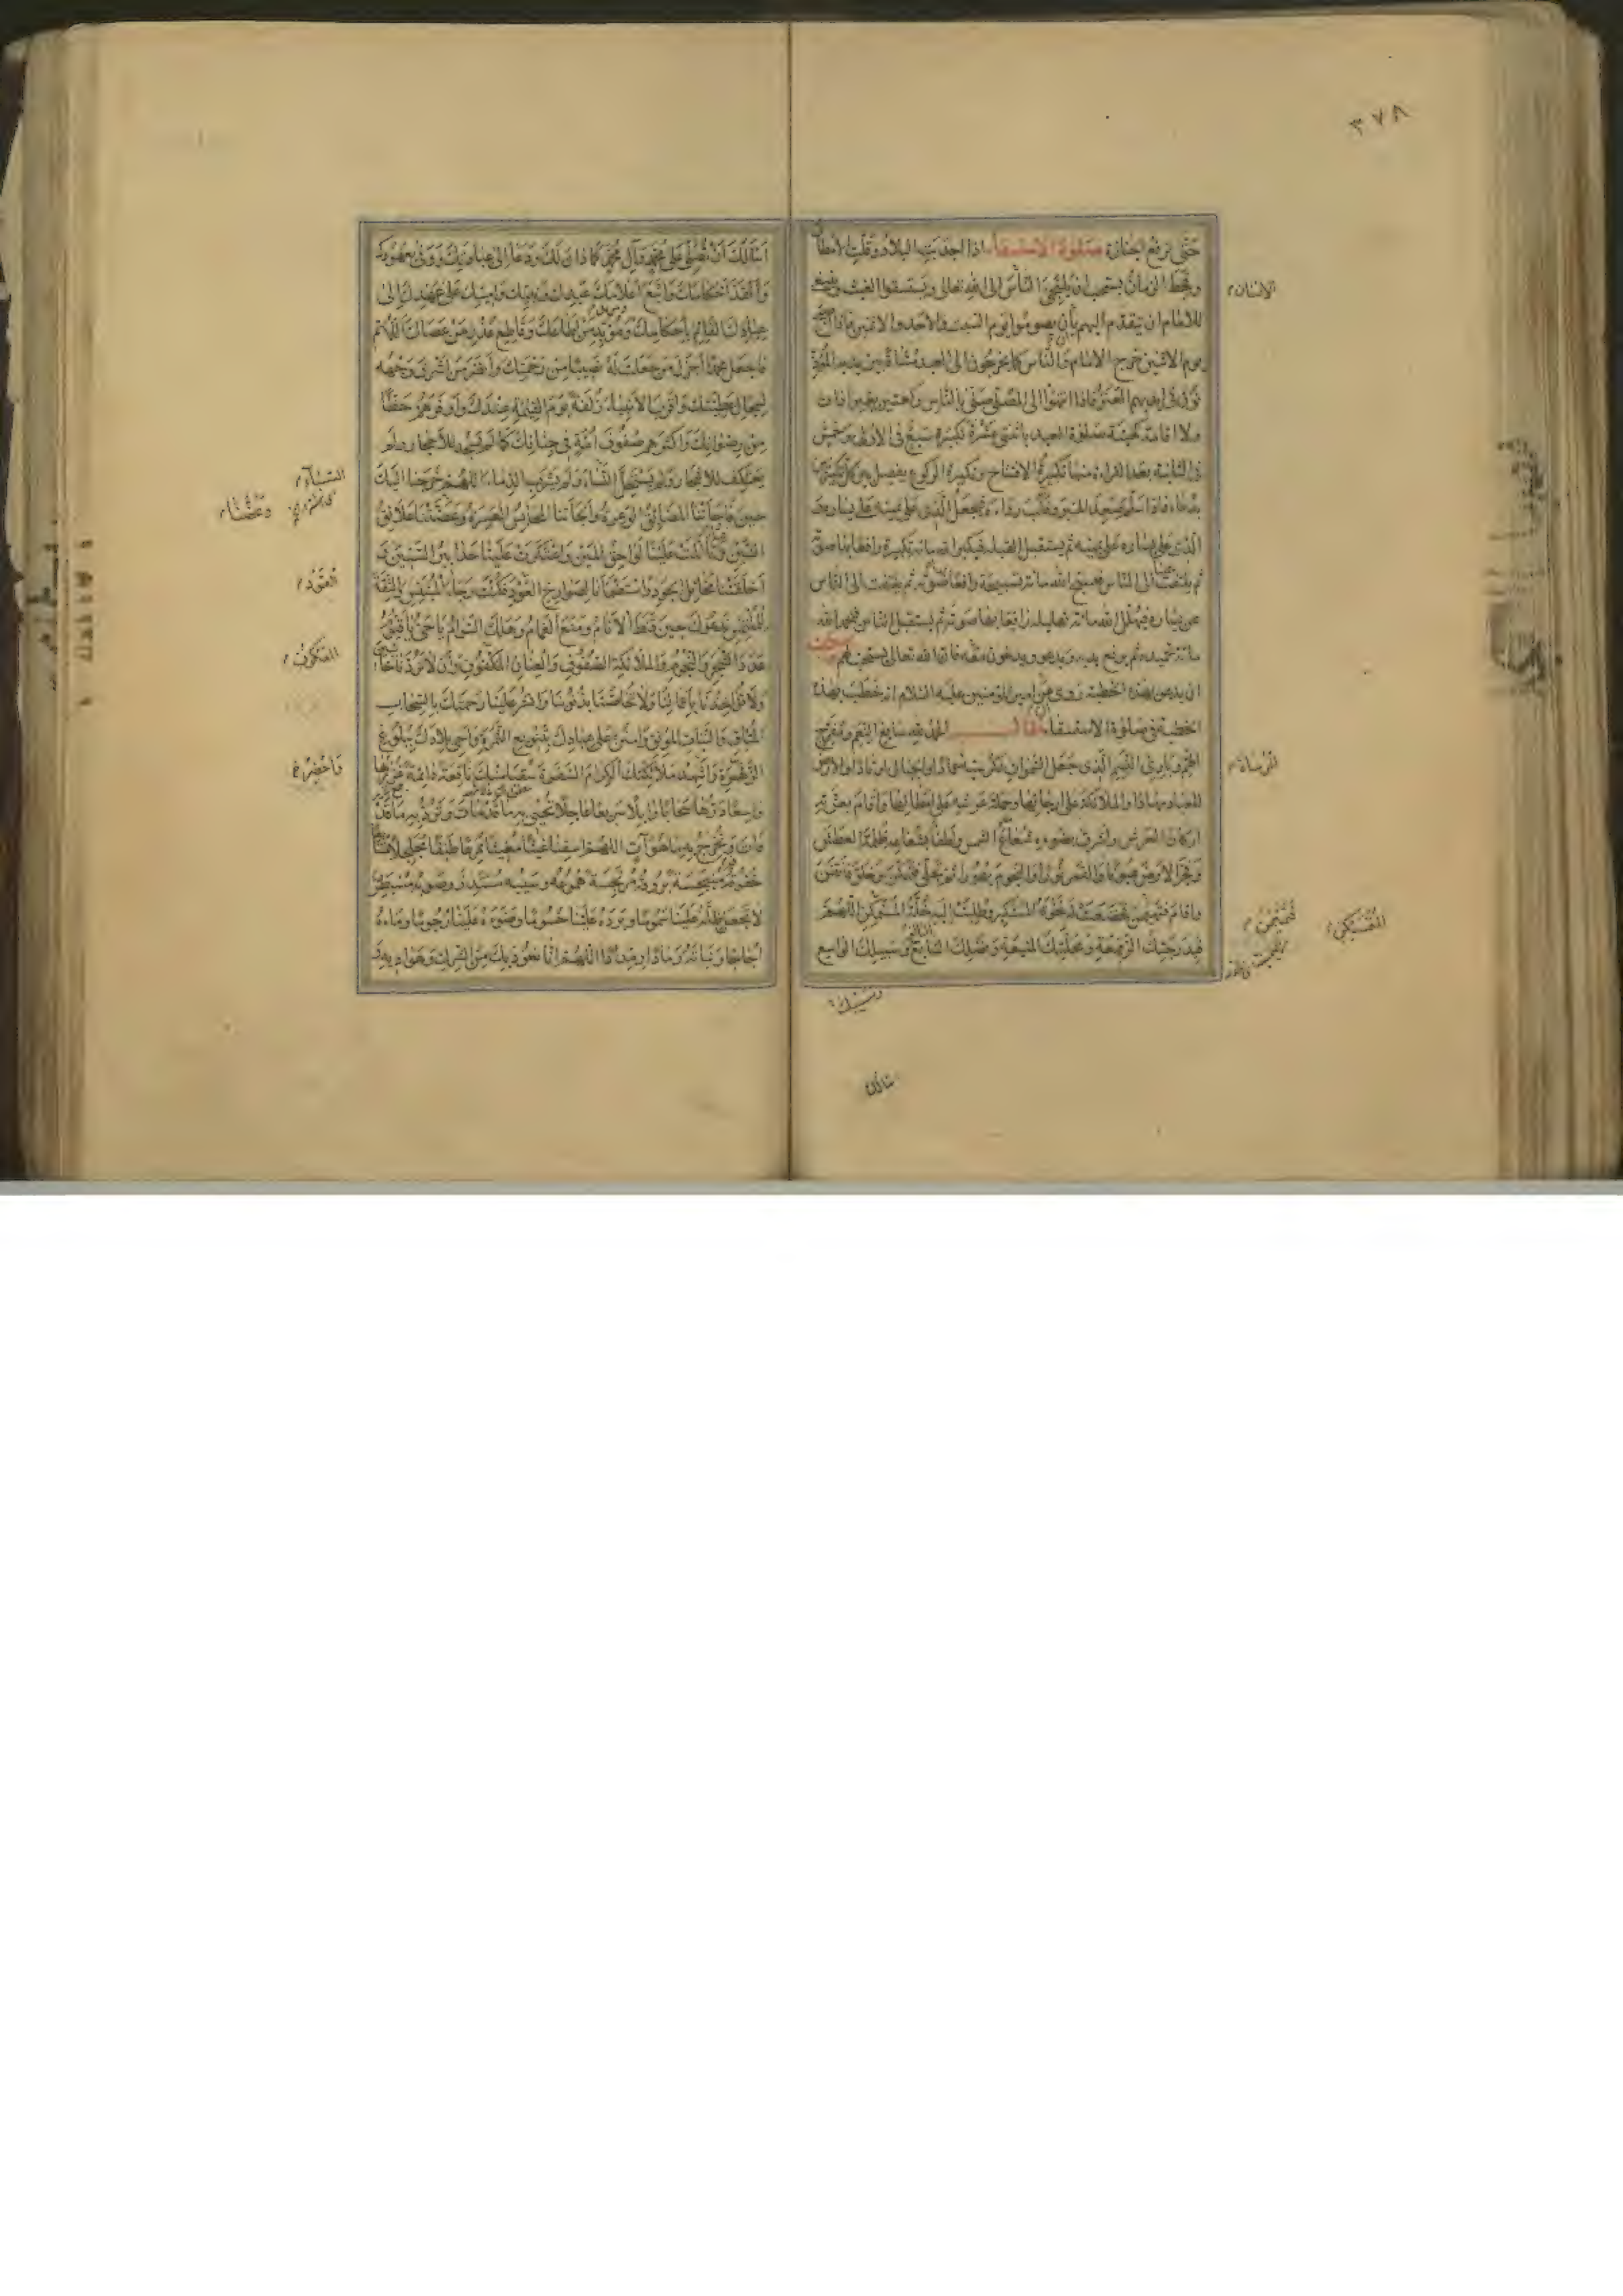 ٣٧٨
حتى ترفع الجنازة صلوة الاستسقاء اذا اجدبت البلاد وقلت الأمطار
وقحط الزمان يستحب ان يلتجئ الناس الى الله تعالى ويستسقوا الغيث
للامام ان يتقدم اليهم بأن يصوموا يوم السبت والأحد والاثنين فاذا كان
يوم الاثنين خرج الامام والناس كما يخرجون الى العيد مشاة بين يديه المؤذن
في ايديهم العنز فاذا انتهوا الى المصلى صلى بالناس ركعتين بغير اذان
ولا اقامة كهيئة صلوة العيد باثنتى عشرة تكبيرة سبع فى الاولى وخمس
فى الثانية بعد القراءة منها تكبيرة الافتتاح وتكبيرة الركوع يفصل بين كل تكبيرتين
بدعاء فاذا سلم صعد المنبر وقلب رداءه فيجعل الذى على يمينه على يساره و
الذى على يساره على يمينه ثم يستقبل القبلة فيكبر الله مائة تكبيرة رافعا بها صوته
ثم يلتفت الى الناس فيسبح الله مائة تسبيحة رافعا صوته ثم يلتفت الى الناس
عن يساره فيهلل الله مائة تهليلة رافعا بها صوته ثم يستقبل الناس فيحمد الله
مائة تحميدة ثم يرفع يديه ويدعو ويدعون معه فان الله تعالى يستجيب لهم
ان يدعى بهذه الخطبة روى عن امير المؤمنين عليه السلام انه خطب بهذه
الخطبة فى صلوة الاستسقاء فقال الحمد لله سابغ النعم ومفرج
الهم وبارئ النسم الذى جعل السموات لكرسيه عمادا والجبال اوتادا والارض
للعباد مهادا والملائكة على ارجائها وحملة عرشه على امطائها واقام بعزته
اركان العرش واشرق بضوءه شعاع الشمس واطفأ بشعاعه ظلمة الغطش
وفجر الارض عيونا والقمر نورا والنجوم بهورا ثم تجلى فتمكن وخلق فاتقن
واقام فتهيمن فخضعت له نخوة المستكبر وطلبت اليه خلة المتمكن اللهم
فبدرجتك الرفيعة ومحلتك المنيعة وفضلك السابغ وسبيلك الواسع
اسئلك ان تصلى على محمد وآل محمد كما دان لك ودعا الى عبادتك ووفى بعهودك
وانفذ احكامك واتبع اعلامك عبدك ونبيك وامينك على عهدك الى
عبادك القائم بأحكامك ومؤيد من اطاعك وقاطع عذر من عصاك اللهم
فاجعل محمدا اجزل من جعلت له نصيبا من رحمتك وانضر من اشرق وجهه
لسجال عطيتك واقرب الأنبياء زلفة يوم القيمة عندك واوفرهم حظا
من رضوانك واكثرهم صفوف امة فى جنانك كما لم يسجد للأحجار ولم
يعتكف للاشجار ولم يستحل السباء ولم يشرب الدماء اللهم خرجنا اليك
حين فاجأتنا المضائق الوعرة والجأتنا المحابس العسرة وعضتنا علائق
الشين وتأثلت علينا لواحق المين واعتكرت علينا حدابير السنين و
اخلفتنا مخائل الجود واستظمأنا لصوارخ القود فكنت رجاء المبتئس والثقة
للملتمس ندعوك حين قنط الأنام ومنع الغمام وهلك السوام يا حى يا قيوم
عدد الشجر والنجوم والملائكة الصفوف والعنان المكفوف ان لا تردنا خائبين
ولا تؤاخذنا بأعمالنا ولا تحاصنا بذنوبنا وانشر علينا رحمتك بالسحاب
المتأق والنبات المونق وامنن على عبادك بتنويع الثمرة واحى بلادك ببلوغ
الزهرة واشهد ملائكتك الكرام السفرة سقيا منك نافعة دائمة غزرها
واسعا درها سحابا وابلا سريعا عاجلا تحيى به ما قد مات وترد به ما قد
فات وتخرج به ما هو آت اللهم اسقنا غيثا مغيثا ممرعا طبقا مجلجلا
خفوقه منبجسة بروقه مرتجسة هموعه وسيبه مستدر وصوبه مسبطر
لا تجعل ظله علينا سموما وبرده علينا حسوما وضوءه علينا رجوما وماءه
اجاجا ونباته رمادا رمددا اللهم انا نعوذ بك من الشرك وهواديه و